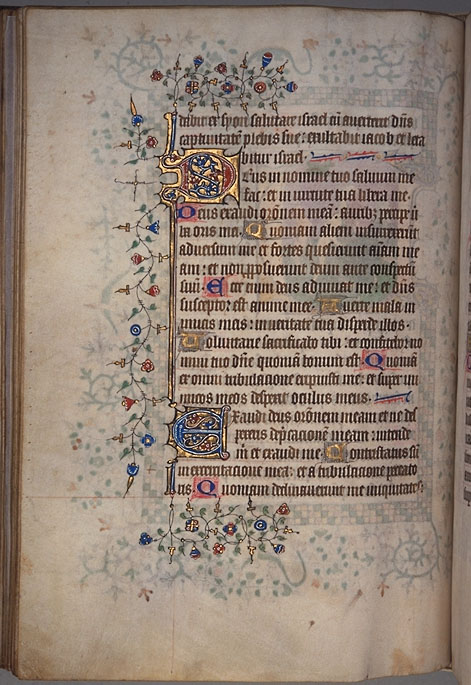 dabit ex syon salutare israel cū auerterit dn̄s
captiuitatē plebis sue: exultabit iacob et leta
bitur israel.
Deus in nomine tuo saluum me
fac: et in uirtute tua libera me.
Deus exaudi or̄onem meā: auribꝫ percipe u̾
ba oris mei. Quoniam alieni insurrexerūt
aduersum me et fortes quesierunt aīam me
am: et non ꝓposuerunt deum ante conspectū
suū. Ecce enim deus adiuuat me: et dn̄s
susceptor est anime mee. Auerte mala in
imicis meis: in ueritate tua disperde illos.
Voluntarie sacrificabo tibi: et confitebor no
mini tuo dn̄e quoniam bonum est. Quoniā
ex omni tribulacione eripuisti me: et super ini
micos meos despexit oculus meus.
Exaudi deus or̄onem meam: et ne des
pexeris dep̄cacionem meam: intende
m̄ et exaudi me. Contristatus sū
in exercitacione mea: et a tribulacione peccato
ris. Quoniam declinauerunt me iniquitates: